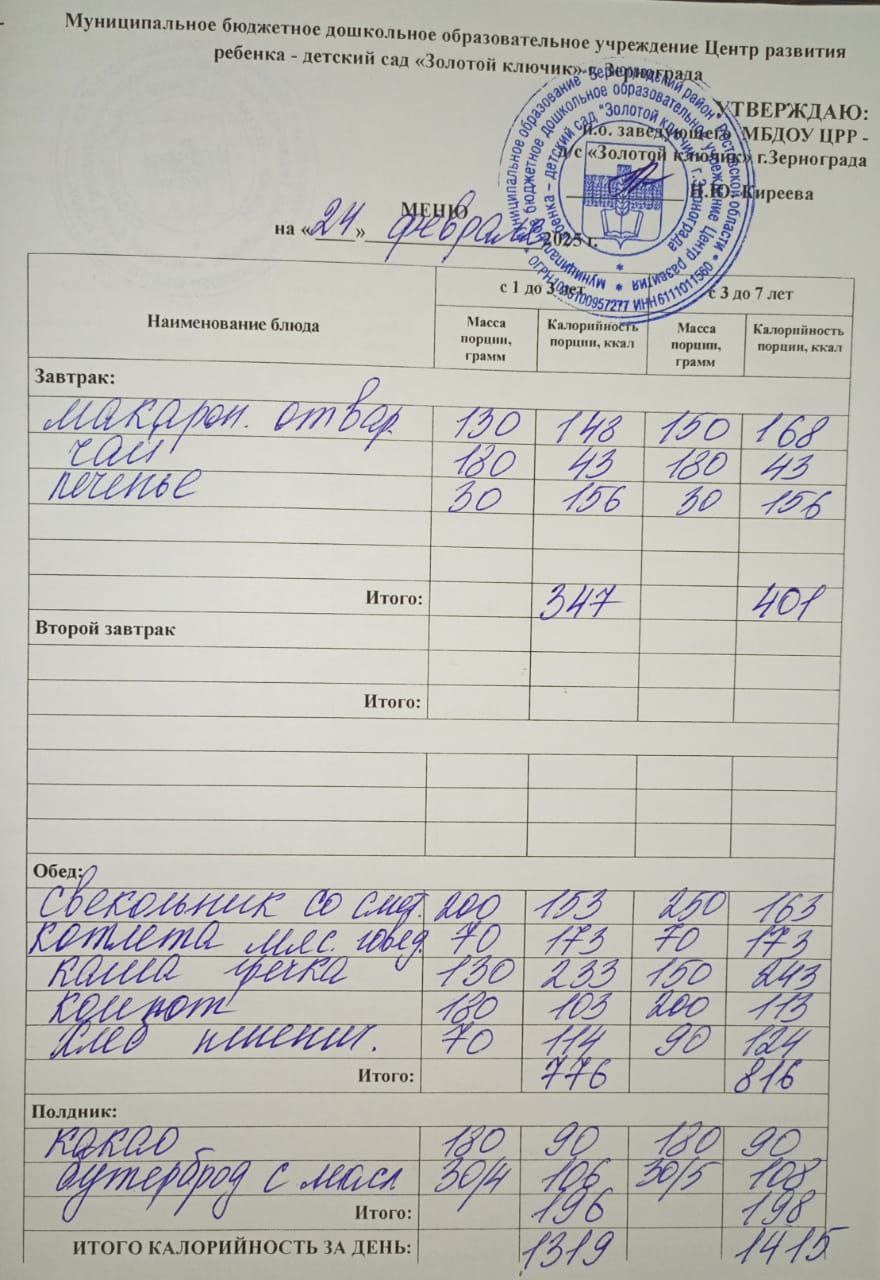 Муниципальное бюджетное дошкольное образовательное учреждение Центр развития
ребенка - детский сад «Золотой ключик» г. Зернограда
УТВЕРЖДАЮ:
И.о. заведующего МБДОУ ЦРР -
д/с «Золотой ключик» г.Зернограда
Н.Ю. Киреева
МЕНЮ
на «24» февраля 2025 г.
Наименование блюда с 1 до 3 лет с 3 до 7 лет
Масса порции, грамм Калорийность порции, ккал Масса порции, грамм Калорийность порции, ккал
Завтрак:
макарон. отвар. 130 148 150 168
чай 180 43 180 43
печенье 30 156 30 156
Итого: 347 401
Второй завтрак
Итого:
Обед:
свекольник со смет. 200 153 250 163
котлета мяс. говяд. 70 173 70 173
каша гречка 130 233 150 243
компот 180 103 200 113
хлеб пшенич. 70 114 90 124
Итого: 776 816
Полдник:
какао 180 90 180 90
бутерброд с масл 30/4 106 30/5 108
Итого: 196 198
ИТОГО КАЛОРИЙНОСТЬ ЗА ДЕНЬ: 1319 1415